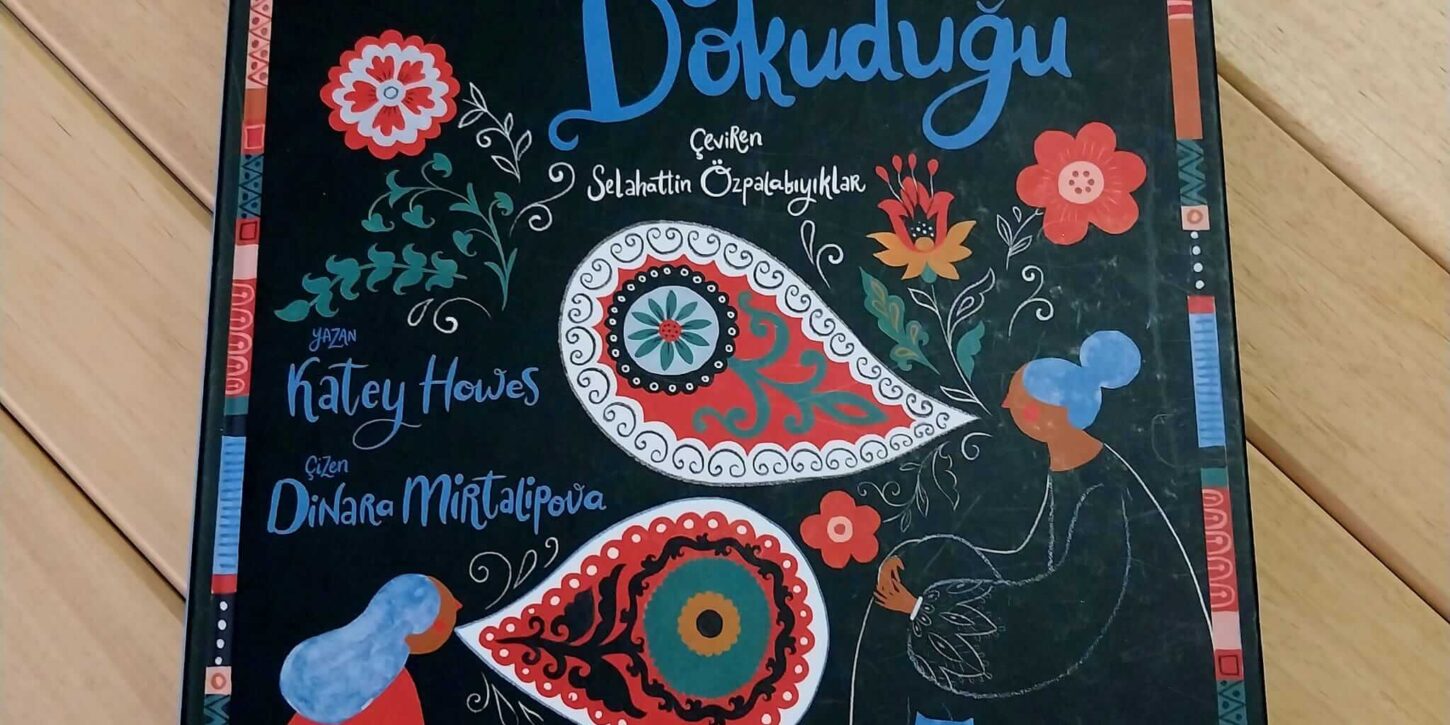 Dokuduğu
Çeviren
Selahattin Özpalabıyıklar
YAZAN
Katey Howes
Çizen
Dinara Mirtalipova